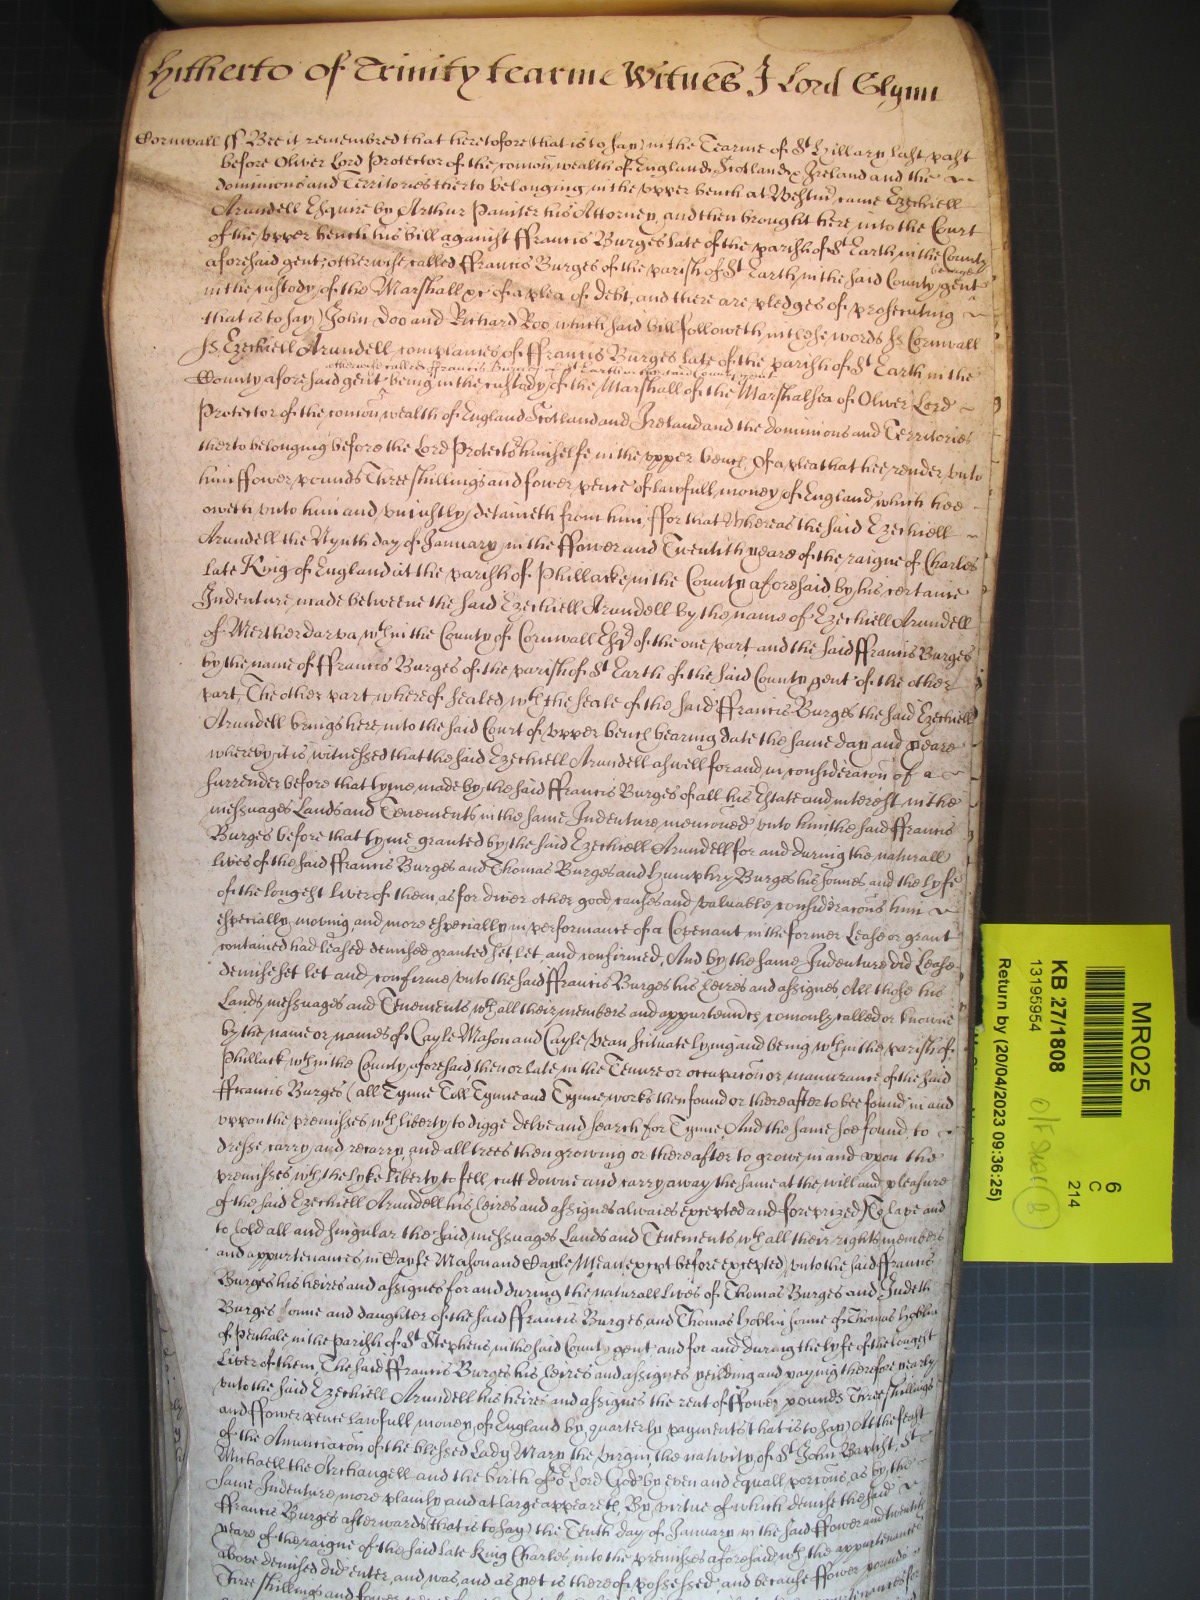 Hitherto of Trinity tearme Witnes J Lord Glynn
Cornwall ss Bee it remembred that heretofore (that is to say) in the Tearme of St Hillary last past
before Oliver Lord Protector of the comon wealth of England Scotland & Ireland and the
dominions and Territories therto belonging in the vpper bench at Westmr came Ezechiell
Arundell Esquire by Arthur Painter his Attorney, and then brought here into the Court
of the vpper bench his bill against ffrancis Burges late of the parish of St Earth in the County
aforesaid gent otherwise called ffrancis Burges of the parish of St Earth in the said County gent
beinge
in the custody of the Marshall &c of a plea of debt, and there are pledges of prosecuting
that is to say) John Doo and Richard Roo which said bill followeth in these words ss Cornwall
ss Ezechiell Arundell complaines of ffrancis Burges late of the parish of St Earth in the
otherwise called ffrancis Burges of St Earth in the said County gent
County aforesaid gent being in the custody of the Marshall of the Marshalsea of Oliver Lord
Protector of the comon wealth of England Scotland and Ireland and the dominions and Territories
therto belonging before the Lord Protector himselfe in the vpper bench, Of a plea that hee render vnto
him ffower pounds Three shillings and fower pence of lawfull money of England which hee
oweth vnto him and vniustly detaineth from him ffor that Whereas the said Ezechiell
Arundell the Nynth day of January in the ffower and Twentith yeare of the raigne of Charles
late King of England at the parish of Phillacke in the County aforesaid by his certaine
Indenture made betweene the said Ezechiell Arundell by the name of Ezechiell Arundell
of Merther darva wthin the County of Cornwall Esqr of the one part and the said ffrancis Burges
by the name of ffrancis Burges of the parish of St Earth of the said County gent of the other
part, The other part whereof sealed wth the seale of the said ffrancis Burges the said Ezechiell
Arundell brings here into the said Court of vpper bench bearing date the same day and yeare
whereby it is witnessed that the said Ezechiell Arundell aswell for and in consideracon of a
surrender before that tyme made by the said ffrancis Burges of all his Estate and interest in the
messuages Lands and Tenements in the same Indenture menconed vnto him the said ffrancis
Burges before that tyme granted by the said Ezechiell Arundell for and during the naturall
lives of the said ffrancis Burges and Thomas Burges and Humphry Burges his sonnes and the lyfe
of the longest liver of them, as for diver other good causes and valuable consideracons him
especially moving and more especially in performance of a Covenant in the former Lease or grant
contained had leased demised granted set let and confirmed, And by the same Indenture did Lease
demise set let and confirme vnto the said ffrancis Burges his heires and assignes, All those his
Lands messuages and Tenements wth all their members and appurtenncs comonly called or knowne
by the name or names of Cayle Mason and Cayle vean scituate lying and being wthin the parish of
Phillack wthin the County aforesaid then or late in the Tenure or occupacon or manurance of the said
ffrancis Burges (all Tynne Toll Tynne and Tynne works then found or thereafter to bee found in and
vppon the premisses wth liberty to digge delve and search for Tynne And the same soe found to
dresse carry and recarry and all trees then growing or thereafter to growe in and vpon the
premisses wth the lyke liberty to fell, cutt downe and carry away the same at the will and pleasure
of the said Ezechiell Arundell his heires and assignes alwaies excepted and foreprized) To have and
to hold all and singular the said messuages Lands and Tenements wth all their rights members
and appurtenances in Cayle Mason and Cayle Mean except before excepted, vnto the said ffrancis
Burges his heires and assignes for and during the naturall lives of Thomas Burges and Judeth
Burges sonne and daughter of the said ffrancis Burges and Thomas Hoblin sonne of Thomas Hoblin
of Penhale in the parish of St Stephens in the said County gent and for and during the lyfe of the longest
Liver of them, The said ffrancis Burges his heires and assignes yeilding and paying therefore yearly
vnto the said Ezechiell Arundell his heires and assignes the rent of ffower pounds Three shillings
and ffower pence lawfull money of England by quarterly payments (that is to say) At the feast
of the Annunciacon of the blessed Lady Mary the virgin the nativity of St John Baptist, St
Michaell the Archangell and the birth of or Lord God by even and equall porcons, as by the
same Indenture more plainly and at large appeareth, By virtue of which demise the said
ffrancis Burges afterwards (that is to say) the Tenth day of January in the said ffower and twentith
yeare of the raigne of the said late King Charles, into the premisses aforesaid wth the appurtenances
above demised did enter, and was, and as yet is thereof possessed, and because ffower pounds
Three shillings and fower
MR025
6
C
214
KB 27/1808
13195954
Return by (20/04/2023 09:36:25)